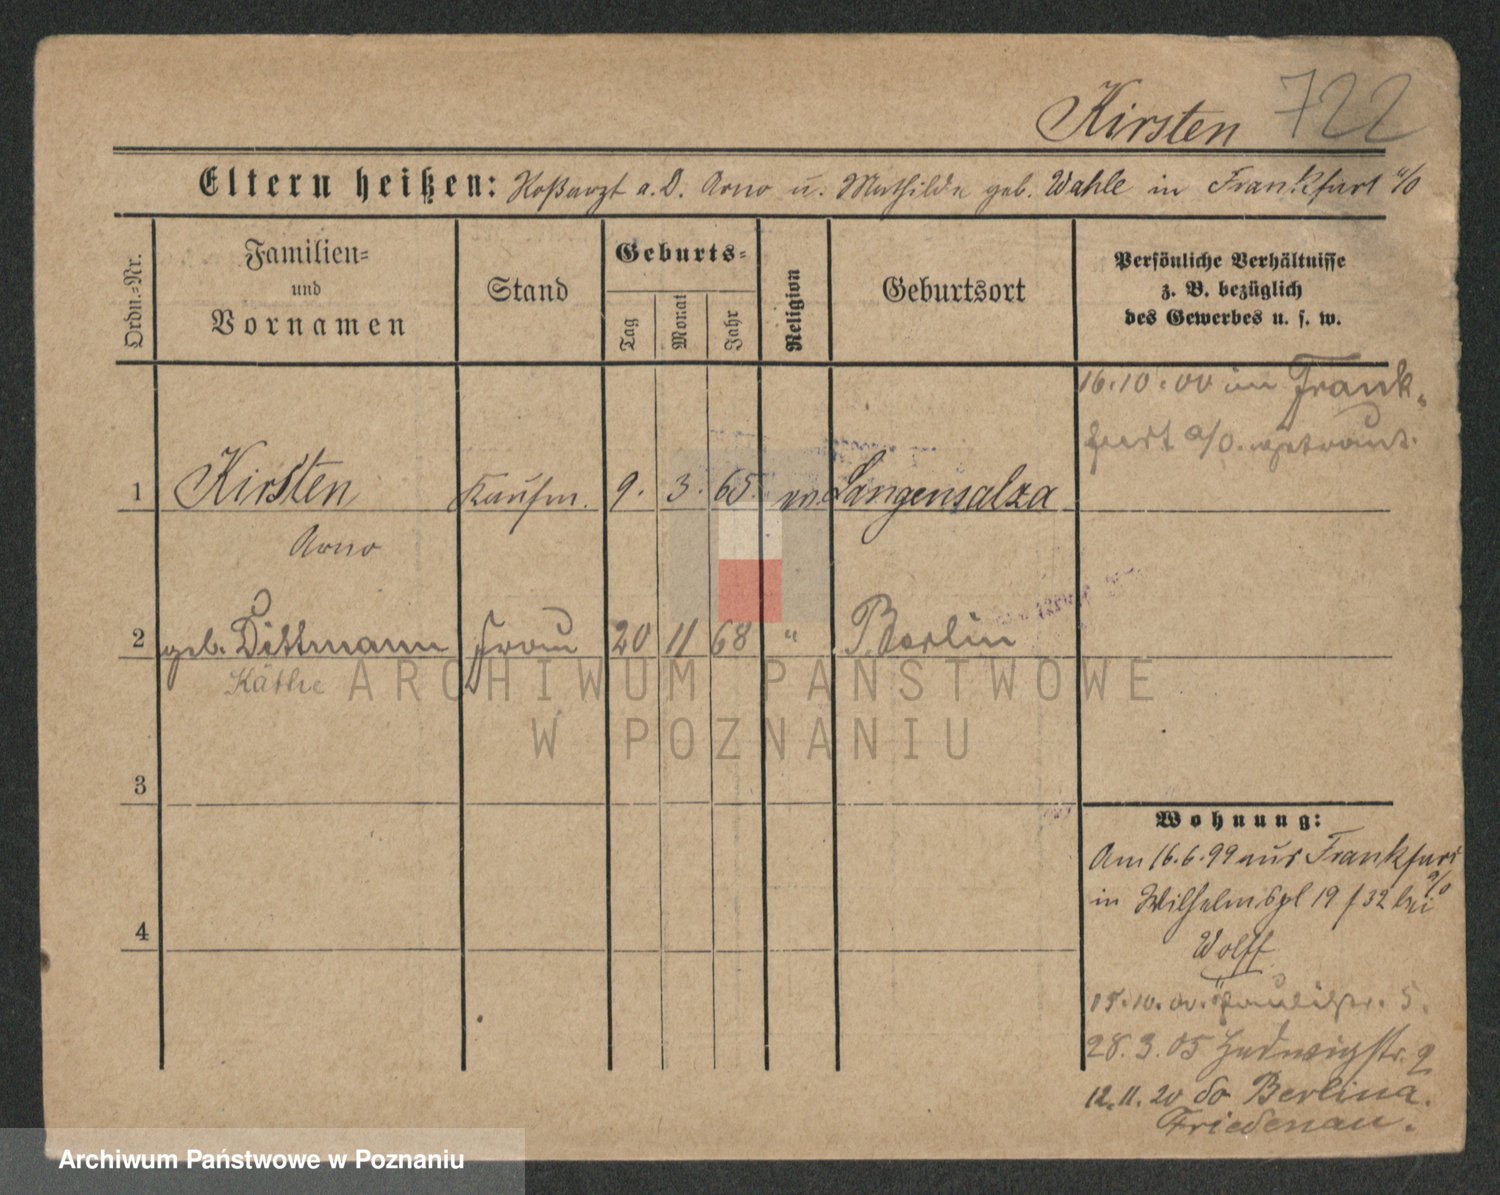 Kirsten 722
Eltern heißen: Roßarzt a. D. Arno u. Mathilde geb. Wahle in Frankfurt a/O
Ordn.=Nr.
Familien=
und
Vornamen
Stand
Geburts=
Tag
Monat
Jahr
Religion
Geburtsort
Persönliche Verhältnisse
z. B. bezüglich
des Gewerbes u. s. w.
16.10.00 in Frank-
furt a/O. getraut.
1 Kirsten Kaufm. 9. 3. 65. ev. Langensalza
Arno
2 geb. Dittmann Frau 20 11 68 " Berlin
Käthe
ARCHIWUM PAŃSTWOWE
W POZNANIU
3
Wohnung:
Am 16.6.99 aus Frankfurt
a/O
in Wilhelmspl 19 f 32 bei
Wolff
4
15.10.00. Paulistr. 5.
28.3.05 Hedwigstr. 9
12.11.20 do Berlin a.
Friedenau.
Archiwum Państwowe w Poznaniu